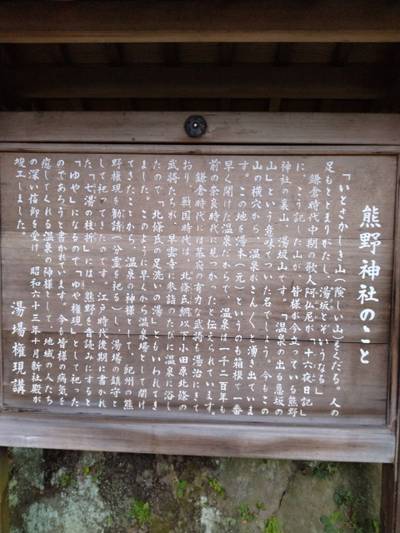 熊野神社のこと
「いとさかしき山(険しい山)をくだる。人の
足もとどまりがたし。湯坂とぞいうなる」
鎌倉時代中期の歌人阿仏尼が「十六夜日記」
に、こう記した山が、皆様が今立っている熊野
神社の裏山、湯坂山です。「温泉の出る急坂の
山」という意味でついた名でしょう。今もこの
山の横穴から、温泉がこんこんと湧き出ていま
す。この地を湯本(元)というのも箱根で一番
早く開けた温泉だからで、温泉は一千二百年も
前の奈良時代に見つかったと伝えられています。
鎌倉時代には幕府の有力な武将も湯治にきて
おり、戦国時代は、北条氏綱以来小田原北条の
武将たちが、早雲寺参詣のたびに温泉に浴し
たので「北条氏の足洗いの湯」ともいわれまし
ました。このように早くから温泉場として開け
てきたことから、温泉の神様として、紀州の熊
野権現を勧請(分霊を祀る)し、湯場の鎮守と
して祀ってきたのです。江戸時代後期に書かれ
た「七湯の枝折」では、熊野を音読みにすると
「ゆや」になるので「ゆや権現」として祀った
のであろうと言われています。今も皆様の病気を
癒してくれる温泉の神様として、地域の人たち
の深い信仰を受け、昭和六十三年十月新社殿が
竣工しました。
湯場権現講